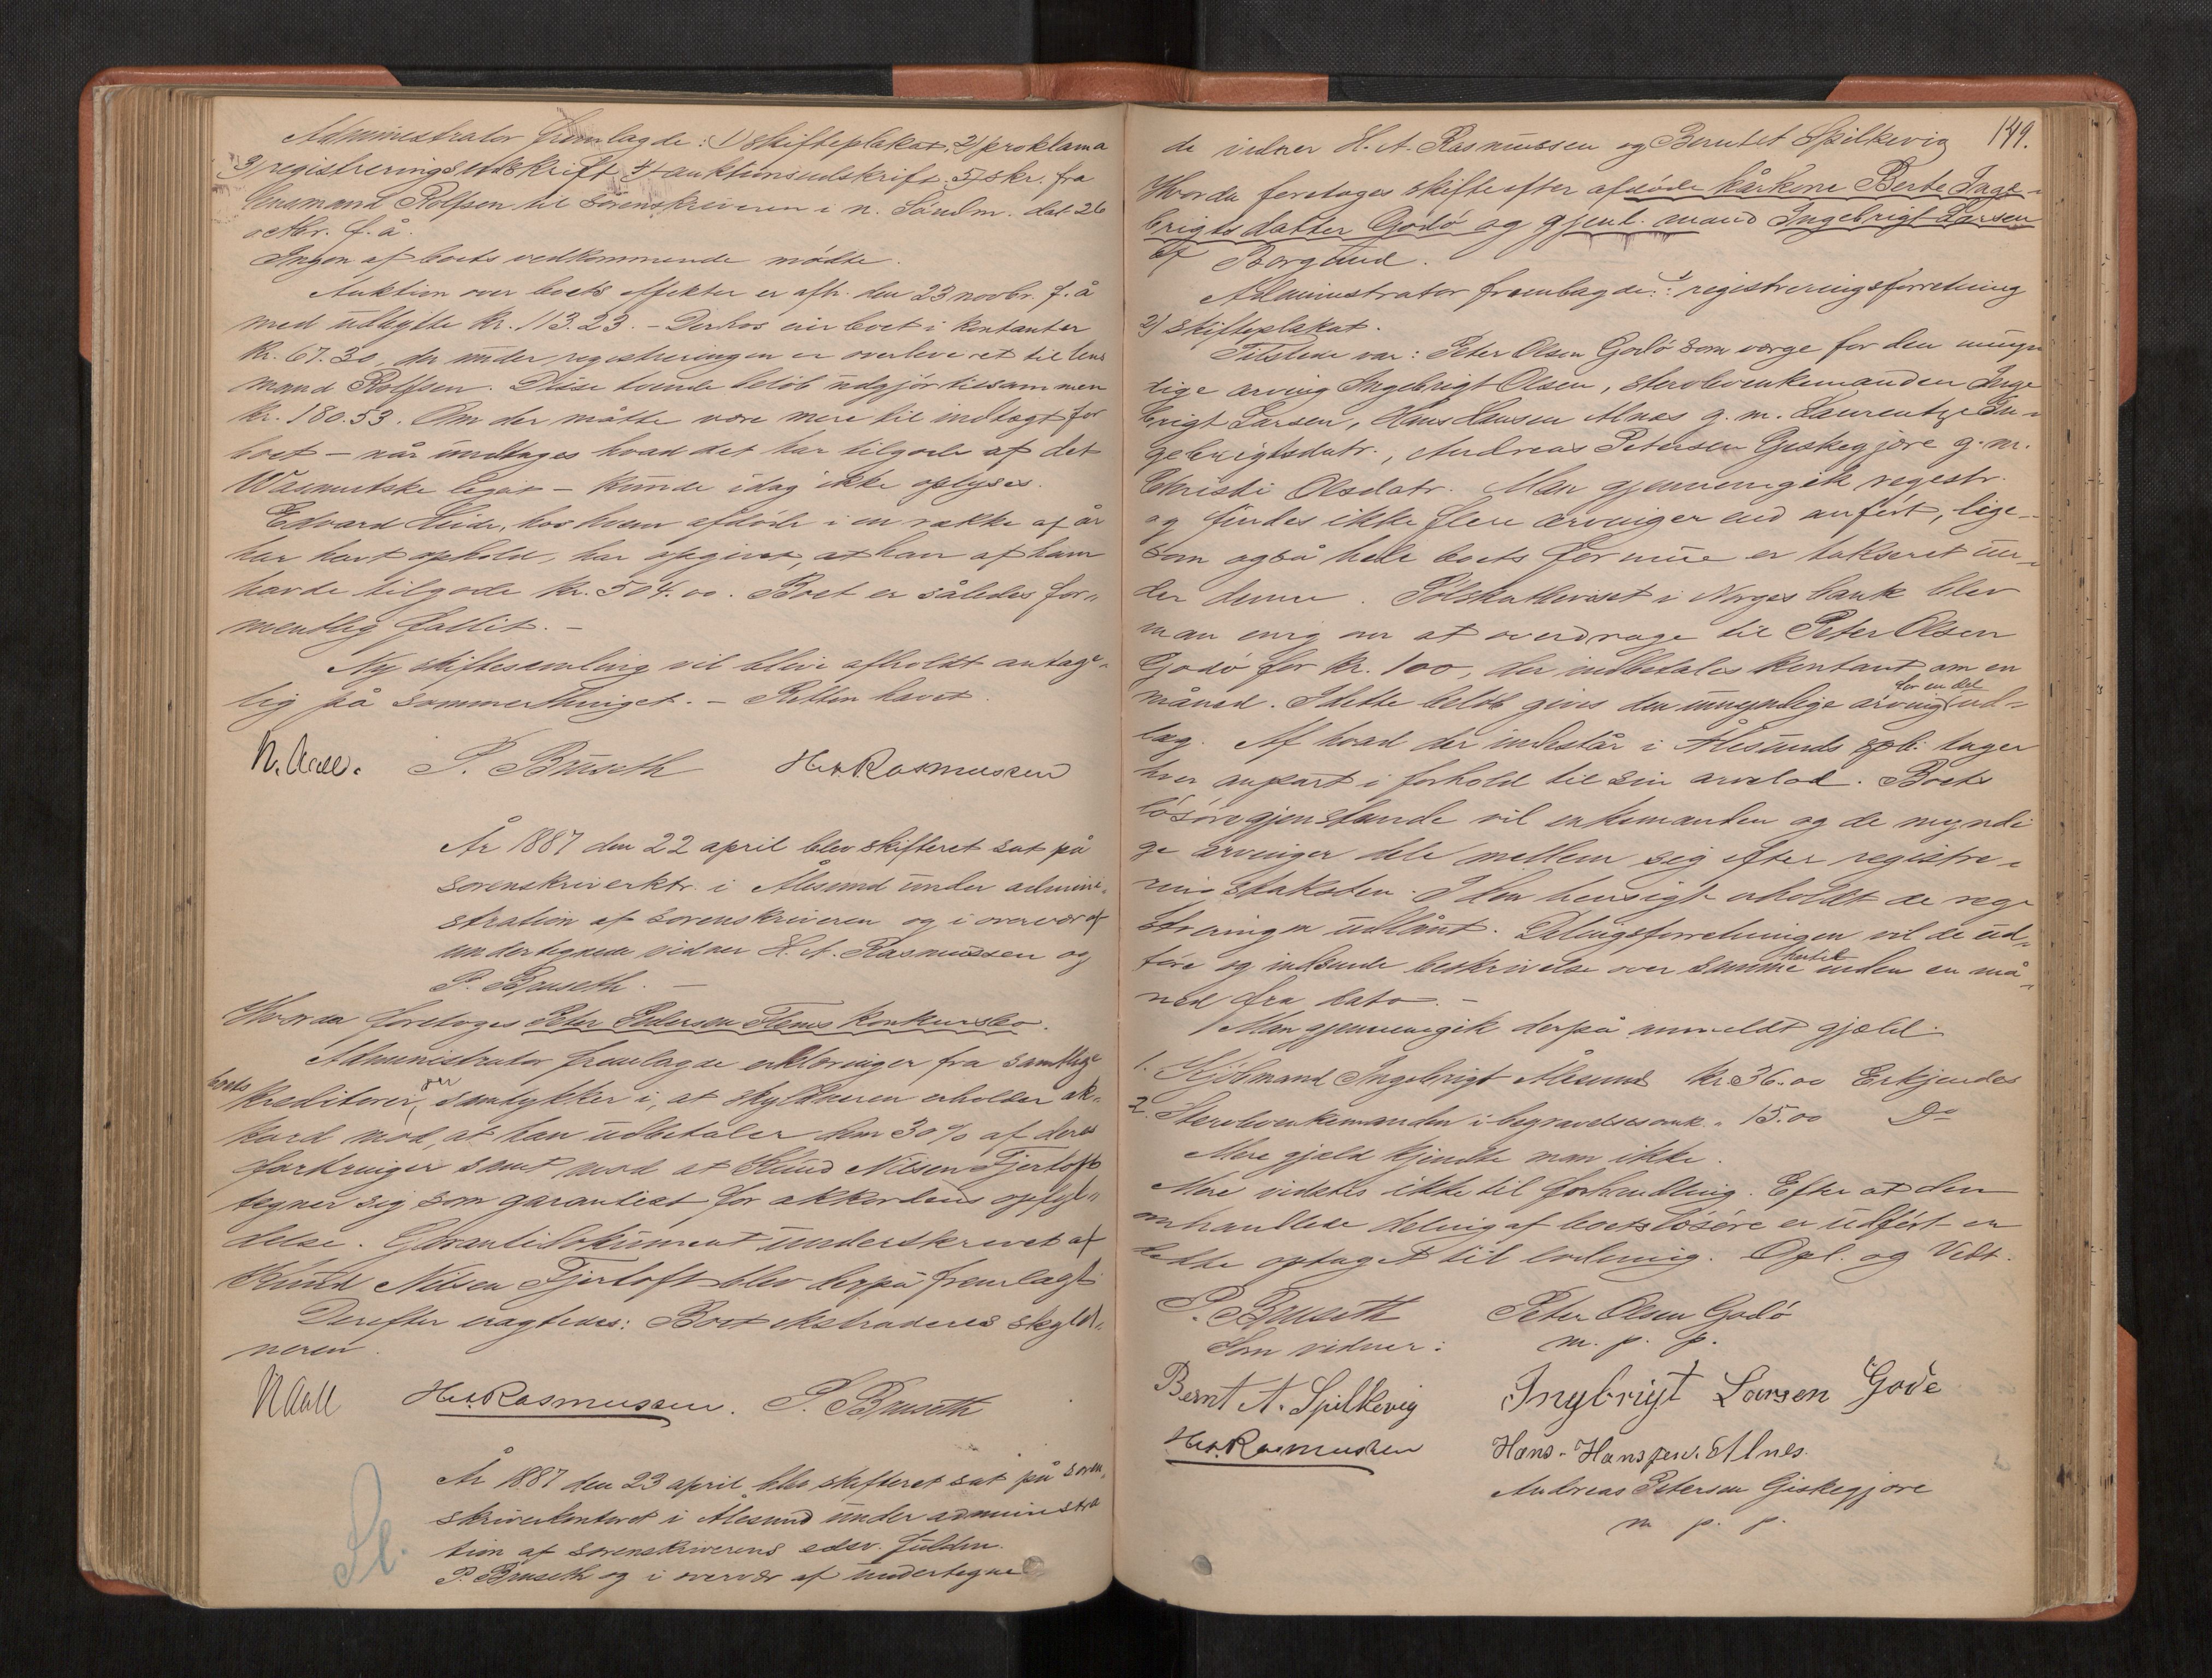 Administrator fremlagde: 1) skifteplakat, 2) proklama
3) registreringsudskrift 4) auktionsudskrift. 5) skr. fra
lensmand Rolfsen til sorenskriveren i n. Söndm. dat 26
octbr. f. å.
Ingen af boets vedkommende mödte.
Auktion over boets effekter er afh. den 23 novbr. f. å
med udbytte kr. 113.23. – Derhos eier boet i kontanter
kr. 67.30, der under registreringen er overleveret til lens
mand Rolfsen. Disse tvende belöb udgjör tilsammen
kr. 180.53. Om der måtte være mere til indtægt for
boet – når undtages hvad det har tilgode af det
legat – kunde idag ikke oplyses.
Edvard hos hvem afdöde i en række af år
har havt ophold, har opgivet, at han af ham
havde tilgode kr. 504.00. Boet er således for„
mentlig fallit. –
Ny skiftesamling vil blive afholdt antage„
lig på sommerthinget. – Retten hævet.
N. Aall. P. Bruseth H. A. Rasmussen
År 1887 den 22 april blev skifteret sat på
sorenskriverktr. i Ålesund under admini„
stration af sorenskriveren og i overvær af
undertegnede vidner H. A. Rasmussen og
P. Bruseth. –
Hvorda foretoges Peter Pedersen Flems konkursbo.
Administrator fremlagde erklæringer fra samtlige
boets kreditorer, der samtykker i, at skyldneren erholder ak„
kord mod, at han udbetaler dem 30% af deres
fordringer samt mod at Knud Nilsen Fjertoft
tegner sig som garantist for akkordens opfyl„
delse. Garantidokument underskrevet af
Knud Nilsen Fjertoft blev derpå fremlagt.
Derefter eragtedes: Boet ekstraderes skyld„
neren.
N Aall H. A. Rasmussen. P. Bruseth
År 1887 den 23 april blev skifteret sat på soren„
skriverkontoret i Ålesund under administra
tion af sorenskriverens edsv. fuldm.
P. Bruseth og i overvær af undertegne
Sl.
149.
de vidner H. A. Rasmussen og Berntet Spilkevig
Hvorda foretoges skifte efter afdöde kårkone Berte Inge„
brigtsdatter Godö og gjenl. mand Ingebrigt Larsen
af Borgund.
Administrator fremlagde: 1) registreringsforretning
2) skifteplakat.
Tilstede var: Peter Olsen Godö som værge for den umyn
dige arving Ingebrigt Olsen, stervboenkemanden Inge
brigt Larsen, Hans Hansen Alnes g. m. Laurentze In„
gebrigtsdatr., Andreas Petersen Giskegjöre g. m.
Christi Olsdatr. Man gjennemgik registr.
og findes ikke flere arvinger end anfört, lige„
som også hele boets formue er takseret un„
der denne. Sölvskatbeviset i Norges bank blev
man enig om at overdrage til Peter Olsen
Godö for kr. 100, der indbetales kontant om en
måned. I dette belöb gives den umyndige arving for en del ud„
læg. Af hvad der indestår i Ålesunds spb. tager
hver anpart i forhold til sin arvelod. Boets
lösöregjenstande vil enkemanden og de myndi
ge arvinger dele mellem sig efter registre„
ringstaksten. I den hensigt erholdt de regi
streringen udlånt. Delingsforretningen vil de ud„
före og indsende beskrivelse over samme hertil inden en må„
ned fra dato. –
Man gjennemgik derpå anmeldt gjæld.
1. Kjöbmand Ingebrigt Ålesund kr. 36.00 Erkjendes
2. Stervboenkemanden i begravelsesomk. „ 15.00 Do
Mere gjæld kjendte man ikke.
Mere vidstes ikke til forhandling. Efter at den
omhandlede deling af boets lösöre er udfört er
dette optaget til endelig. Opl. og Vedt.
P. Bruseth Peter Olsen Godö
Som vidner: m. p. p.
Bernt A. Spilkevig Ingbrigt Larsen Gode
H. A. Rasmussen Hans Hanssen. Alnes.
Andreas Petersen Giskegjöre
m p. p.